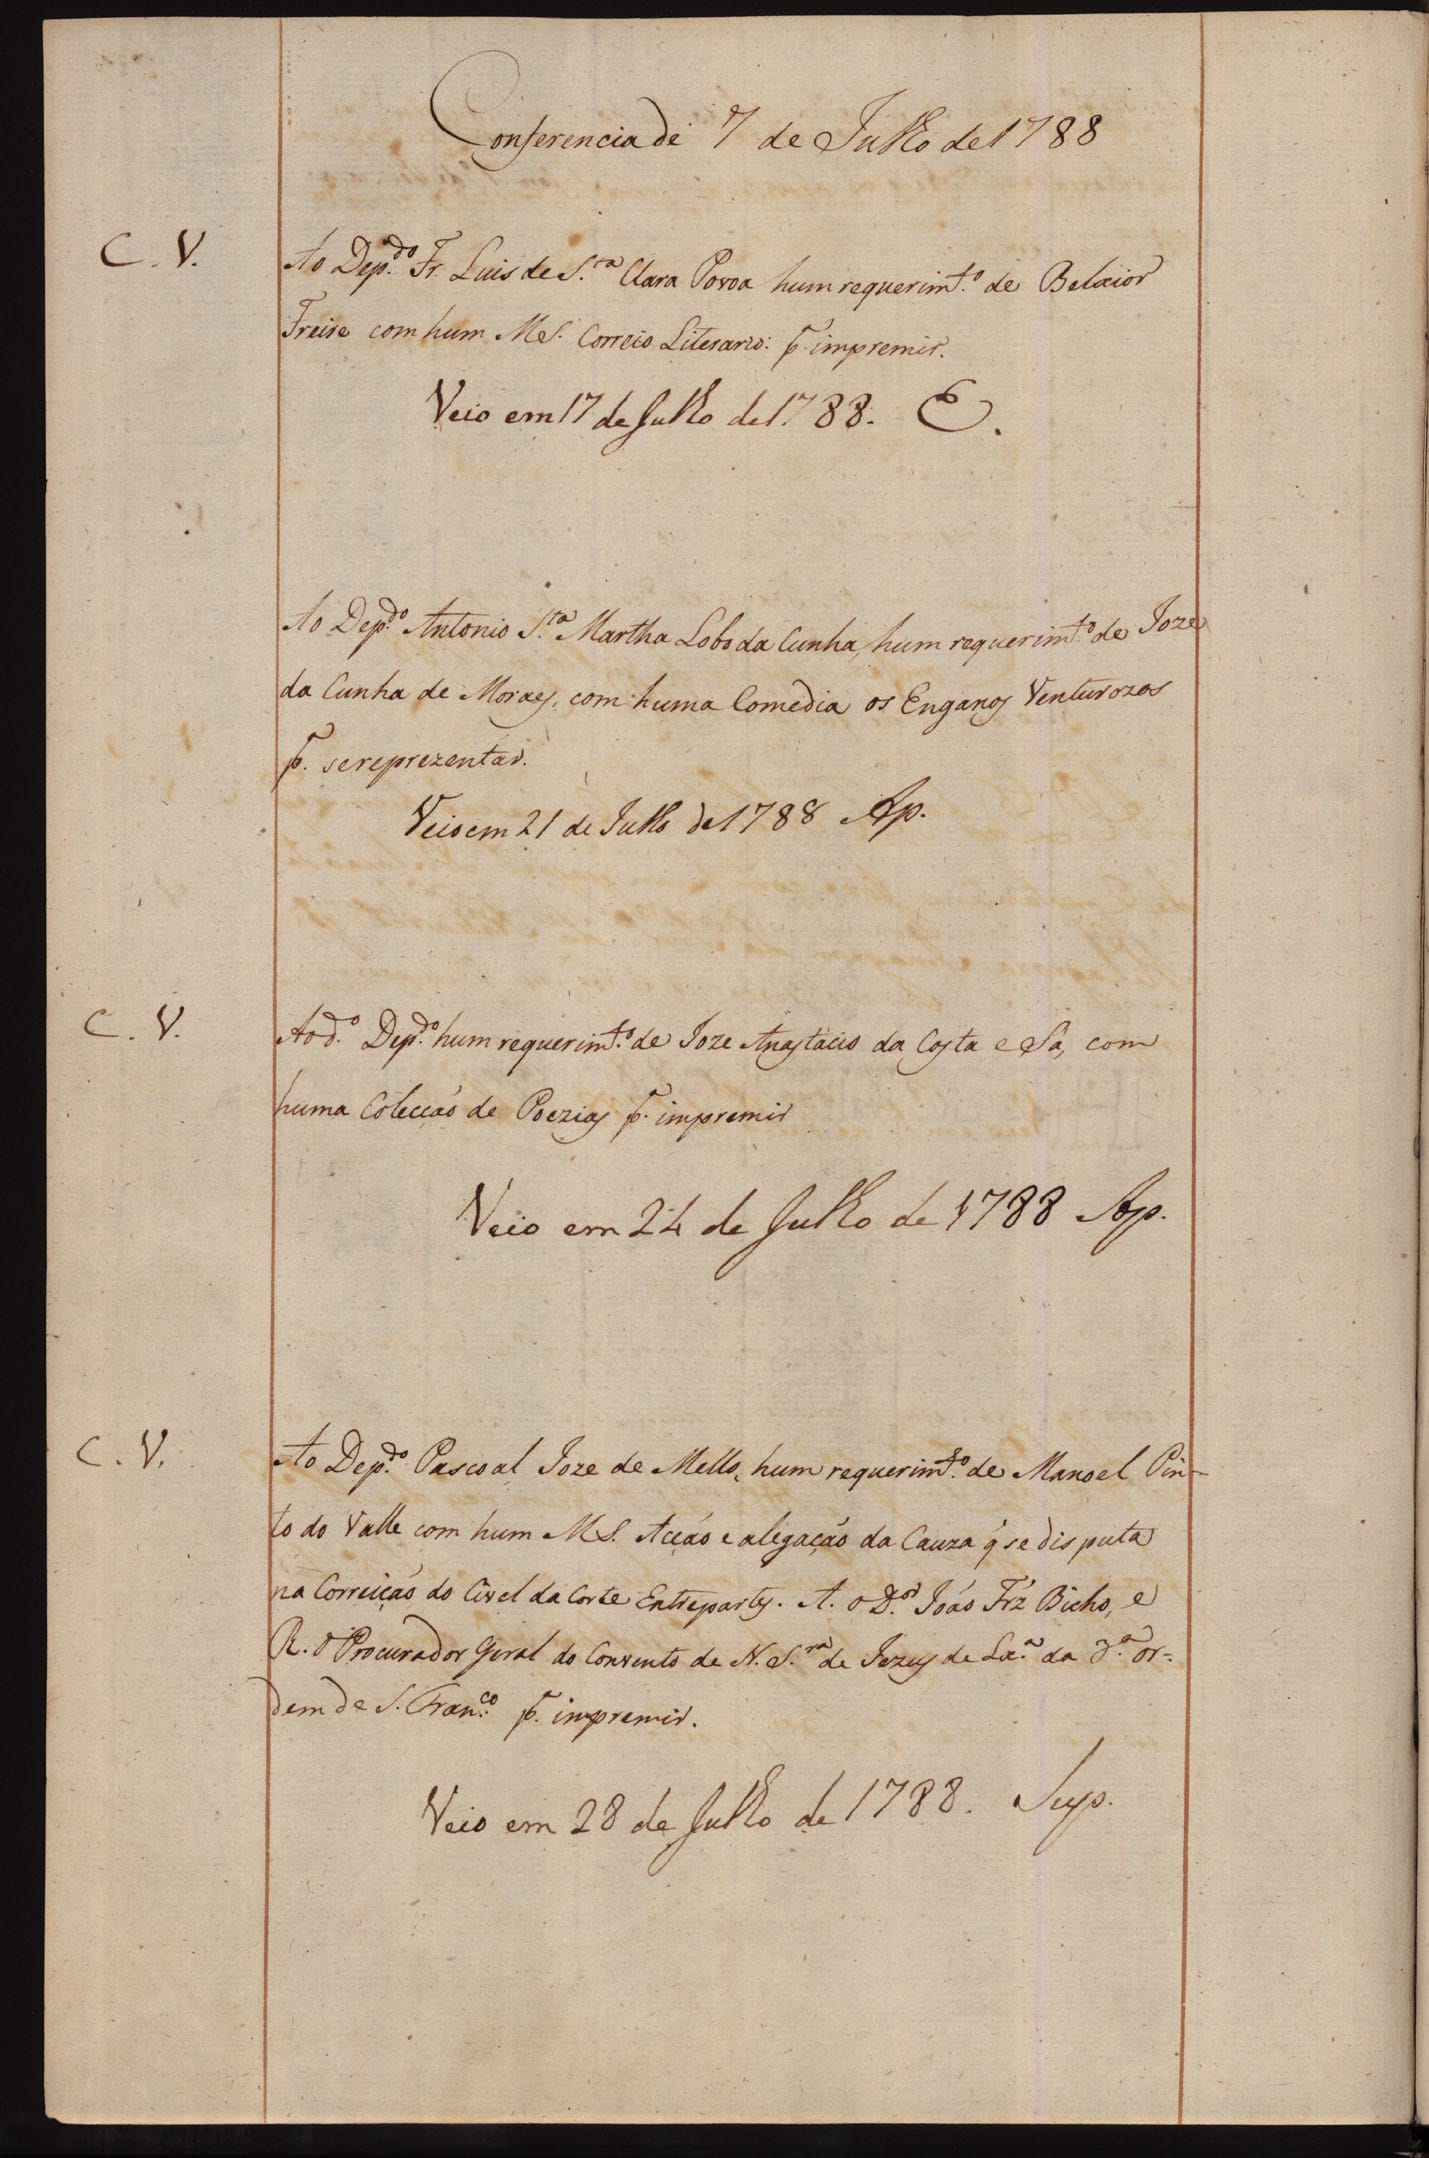 Conferencia de 7 de Julho de 1788
C. V.
Ao Dep.do Fr. Luis de S.ta Clara Povoa hum requerim.to de Belxior
Freire com hum MS. Correio Literario: p.a impremir.
Veio em 17 de Julho de 1788. E.
Ao Dep.do Antonio S.ta Martha Lobo da Cunha, hum requerim.to de Joze
da Cunha de Moraes, com huma Comedia os Enganos Venturozos
p.a se reprezentar.
Veio em 21 de Julho de 1788 Ap.
C. V.
Ao d.o Dep.do hum requerim.to de Joze Anastacio da Costa e Sá, com
huma Colecçaõ de Poezias p.a impremir
Veio em 24 de Julho de 1788 Ap.
C. V.
Ao Dep.do Pascoal Joze de Mello, hum requerim.to de Manoel Pin-
to do Valle com hum MS. Acçaõ e alegaçaõ da Cauza q̃ se disputa
na Correiçaõ do Civel da Corte Entre partes. A. o D.or Joaõ Frz̃ Bicho, e
R. o Procurador Geral do Convento de N. S.ra de Jezus de Lx.a da 3.a or=
dem de S. Fran.co p.a impremir.
Veio em 28 de Julho de 1788. Sup.